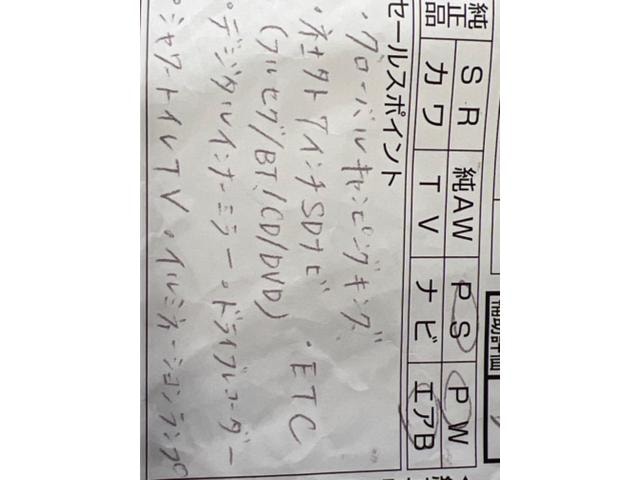 純正品
SR 純AW PS PW
カワ TV ナビ エアB
セールスポイント
・グローバルキャンピングキング
・ネオクト 7インチSDナビ ・ETC
(フルセグ/BT/CD/DVD)
・デジタルインナーミラー ・ドライブレコーダー
・シャワートイレTV ・イルミネーションランプ
補助評価